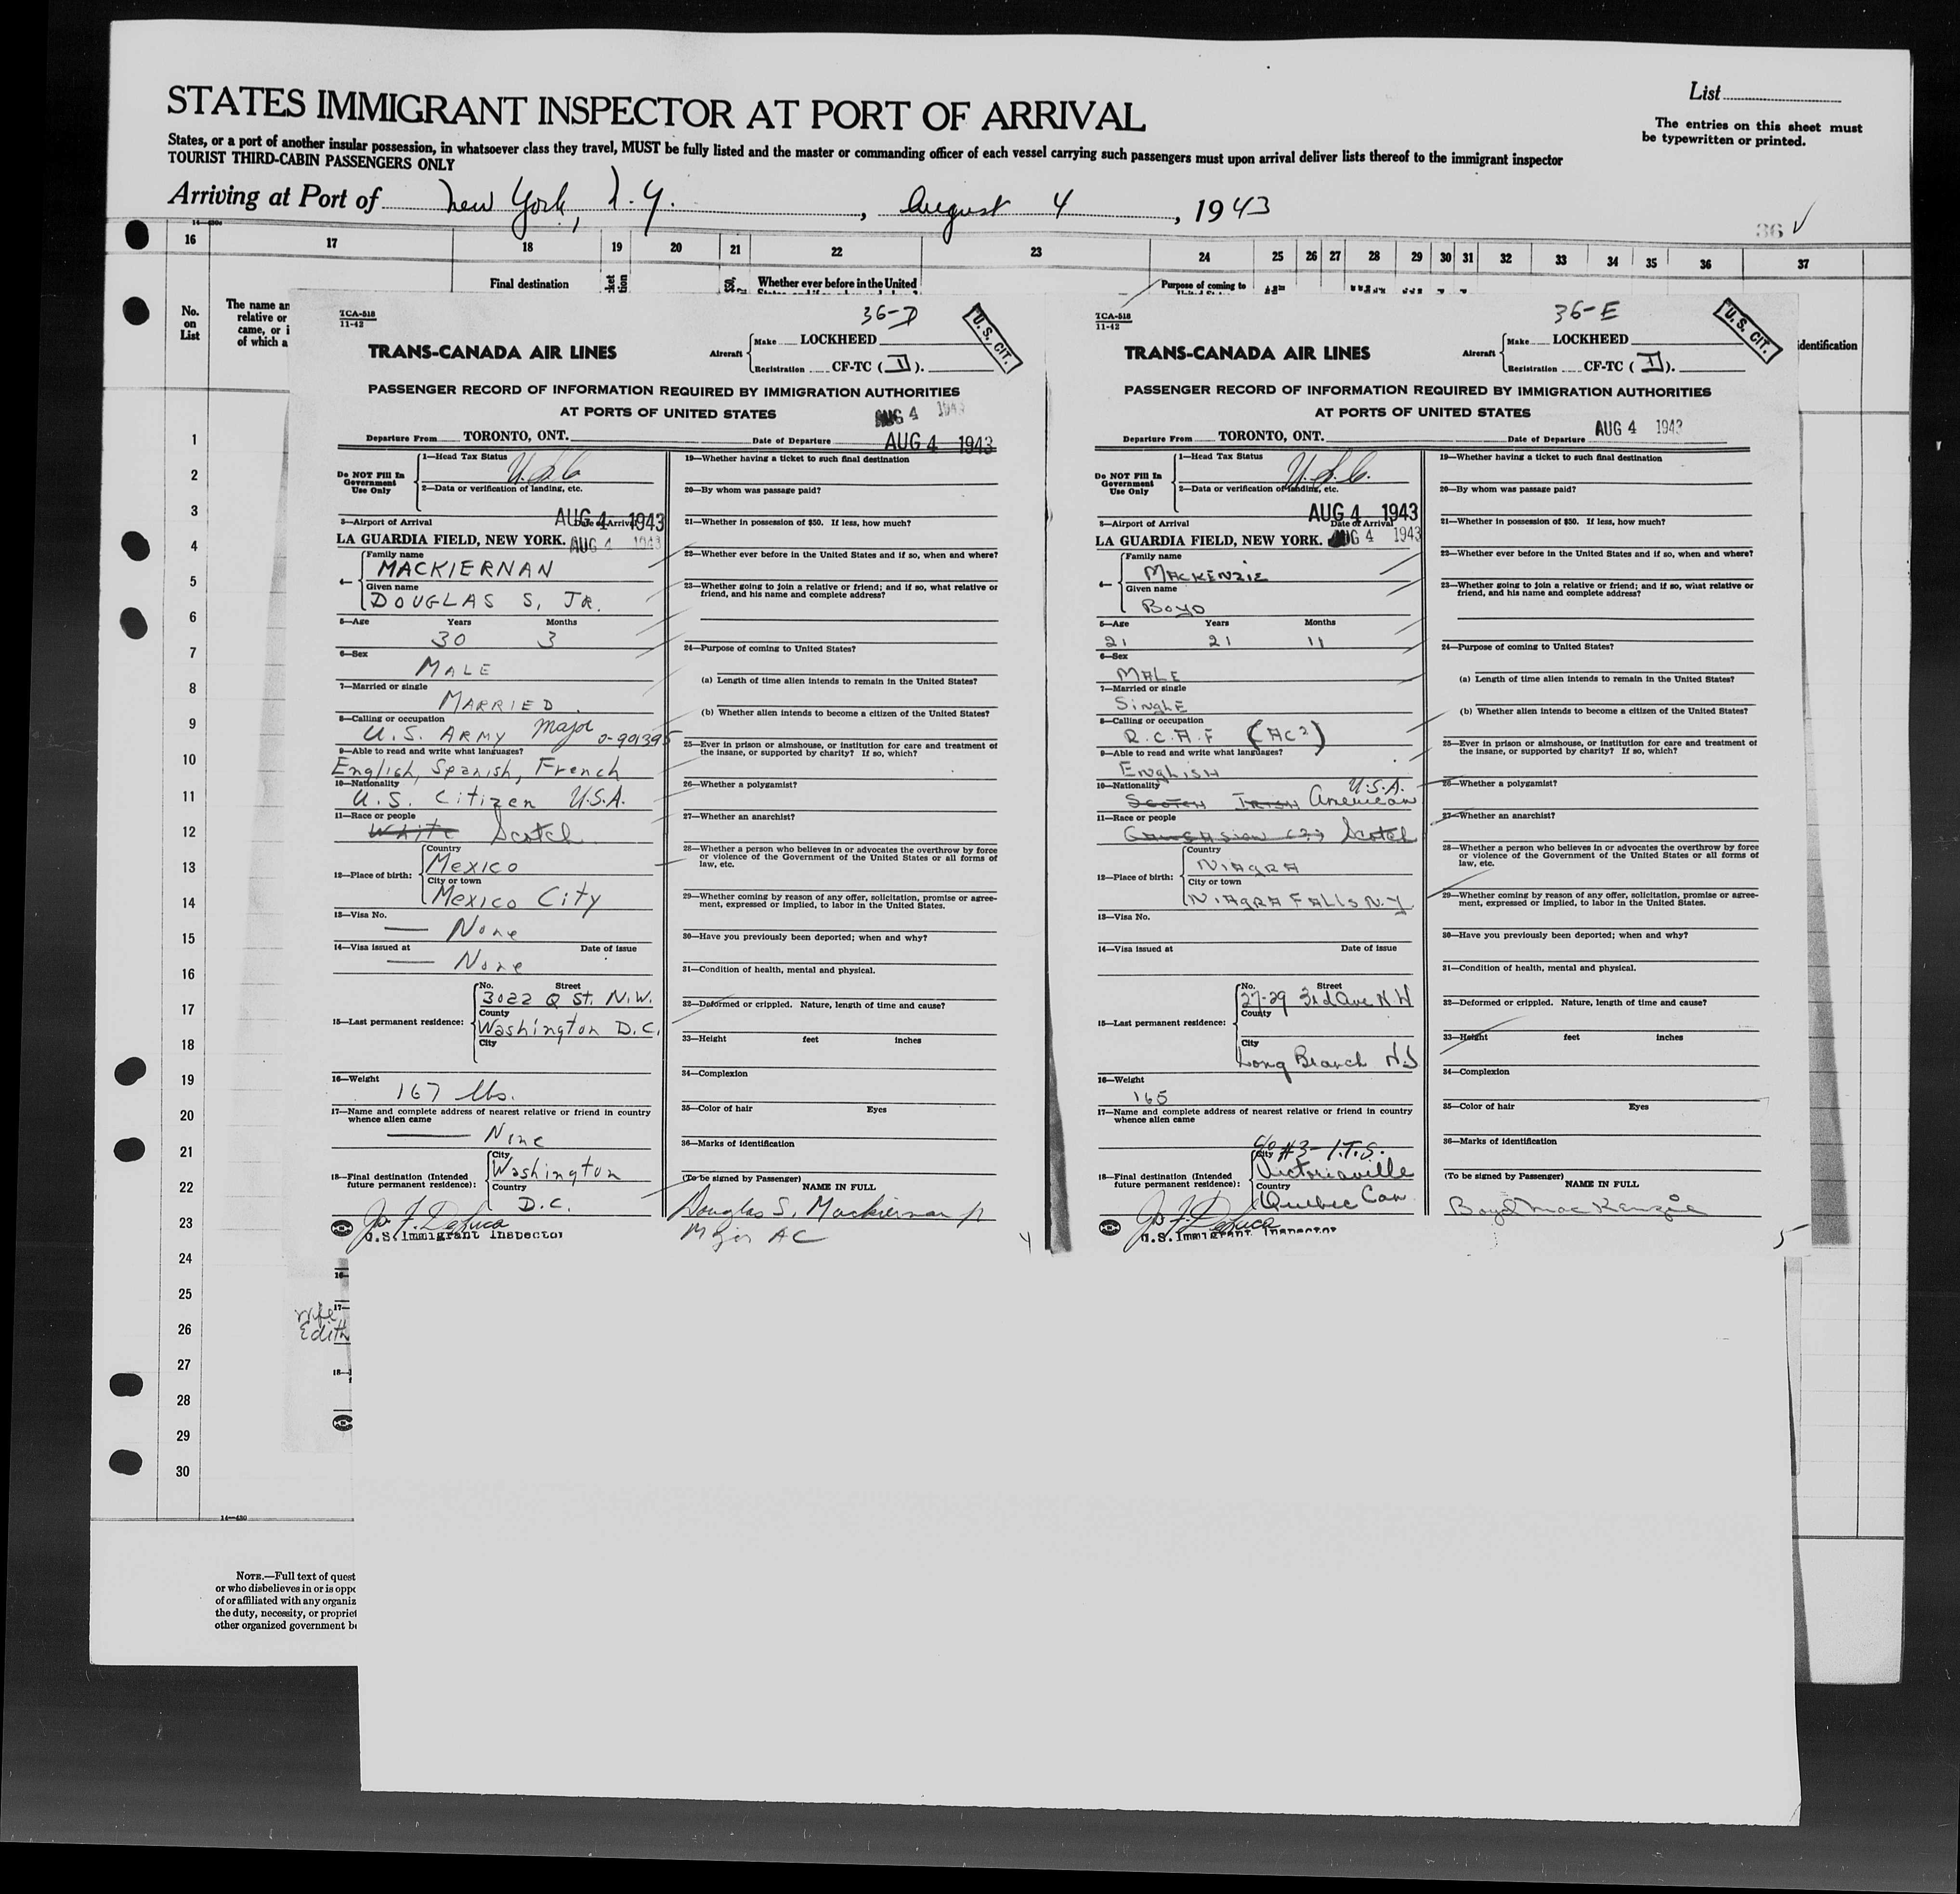 STATES IMMIGRANT INSPECTOR AT PORT OF ARRIVAL
List
The entries on this sheet must
be typewritten or printed.
States, or a port of another insular possession, in whatsoever class they travel, MUST be fully listed and the master or commanding officer of each vessel carrying such passengers must upon arrival deliver lists thereof to the immigrant inspector
TOURIST THIRD-CABIN PASSENGERS ONLY
Arriving at Port of New York, N.Y. , August 4 , 1943
36 ✓
16 17 18 19 20 21 22 23 24 25 26 27 28 29 30 31 32 33 34 35 36 37
No.
on
List
The name an
relative or
came, or i
of which a
Final destination
Whether ever before in the United
Purpose of coming to
identification
1
2
3
4
5
6
7
8
9
10
11
12
13
14
15
16
17
18
19
20
21
22
23
24
25
26
27
28
29
30
TCA-518
11-42
36-D
U.S. CIT.
TRANS-CANADA AIR LINES
Aircraft
Make LOCKHEED
Registration CF-TC (D).
PASSENGER RECORD OF INFORMATION REQUIRED BY IMMIGRATION AUTHORITIES
AT PORTS OF UNITED STATES
AUG 4 1943
Departure From TORONTO, ONT. Date of Departure AUG 4 1943
Do NOT Fill In
Government
Use Only
1—Head Tax Status
U.S.C
2—Data or verification of landing, etc.
3—Airport of Arrival Date of Arrival AUG 4 1943
LA GUARDIA FIELD, NEW YORK. AUG 4 1943
4—
Family name
MACKIERNAN
Given name
DOUGLAS S, JR.
5—Age Years Months
30 3
6—Sex
MALE
7—Married or single
MARRIED
8—Calling or occupation
U.S. ARMY Major 0-901395
9—Able to read and write what languages?
English, Spanish, French
10—Nationality
U.S. Citizen U.S.A.
11—Race or people
White Scotch
12—Place of birth:
Country
Mexico
City or town
Mexico City
13—Visa No.
— None
14—Visa issued at Date of issue
— None
15—Last permanent residence:
No. Street
3022 Q St. N.W.
County
Washington D.C.
City
16—Weight
167 lbs.
17—Name and complete address of nearest relative or friend in country
whence alien came
— None
18—Final destination (Intended
future permanent residence):
City
Washington
Country
D.C.
Jos. F. DeLuca
U.S. Immigrant Inspector
19—Whether having a ticket to such final destination
20—By whom was passage paid?
21—Whether in possession of $50. If less, how much?
22—Whether ever before in the United States and if so, when and where?
23—Whether going to join a relative or friend; and if so, what relative or
friend, and his name and complete address?
24—Purpose of coming to United States?
(a) Length of time alien intends to remain in the United States?
(b) Whether alien intends to become a citizen of the United States?
25—Ever in prison or almshouse, or institution for care and treatment of
the insane, or supported by charity? If so, which?
26—Whether a polygamist?
27—Whether an anarchist?
28—Whether a person who believes in or advocates the overthrow by force
or violence of the Government of the United States or all forms of
law, etc.
29—Whether coming by reason of any offer, solicitation, promise or agree-
ment, expressed or implied, to labor in the United States.
30—Have you previously been deported; when and why?
31—Condition of health, mental and physical.
32—Deformed or crippled. Nature, length of time and cause?
33—Height feet inches
34—Complexion
35—Color of hair Eyes
36—Marks of identification
(To be signed by Passenger)
NAME IN FULL
Douglas S. Mackiernan Jr
Major AC
4
TCA-518
11-42
36-E
U.S. CIT.
TRANS-CANADA AIR LINES
Aircraft
Make LOCKHEED
Registration CF-TC (D).
PASSENGER RECORD OF INFORMATION REQUIRED BY IMMIGRATION AUTHORITIES
AT PORTS OF UNITED STATES
Departure From TORONTO, ONT. Date of Departure AUG 4 1943
Do NOT Fill In
Government
Use Only
1—Head Tax Status
U.S.C.
2—Data or verification of landing, etc.
AUG 4 1943
3—Airport of Arrival Date of Arrival
LA GUARDIA FIELD, NEW YORK. AUG 4 1943
4—
Family name
MACKENZIE
Given name
BOYD
5—Age Years Months
21 21 11
6—Sex
MALE
7—Married or single
SINGLE
8—Calling or occupation
R.C.A.F (AC2)
9—Able to read and write what languages?
ENGLISH
10—Nationality U.S.A.
SCOTCH IRISH American
11—Race or people
Scotch
12—Place of birth:
Country
NIAGRA
City or town
NIAGRA FALLS N.Y
13—Visa No.
14—Visa issued at Date of issue
15—Last permanent residence:
No. Street
27-29 3rd Ave N W
County
City
Long Branch NJ
16—Weight
165
17—Name and complete address of nearest relative or friend in country
whence alien came
c/o #3-I.T.S.
18—Final destination (Intended
future permanent residence):
City
Victoriaville
Country
Quebec Can
Jos. F. DeLuca
U.S. Immigrant Inspector
19—Whether having a ticket to such final destination
20—By whom was passage paid?
21—Whether in possession of $50. If less, how much?
22—Whether ever before in the United States and if so, when and where?
23—Whether going to join a relative or friend; and if so, what relative or
friend, and his name and complete address?
24—Purpose of coming to United States?
(a) Length of time alien intends to remain in the United States?
(b) Whether alien intends to become a citizen of the United States?
25—Ever in prison or almshouse, or institution for care and treatment of
the insane, or supported by charity? If so, which?
26—Whether a polygamist?
27—Whether an anarchist?
28—Whether a person who believes in or advocates the overthrow by force
or violence of the Government of the United States or all forms of
law, etc.
29—Whether coming by reason of any offer, solicitation, promise or agree-
ment, expressed or implied, to labor in the United States.
30—Have you previously been deported; when and why?
31—Condition of health, mental and physical.
32—Deformed or crippled. Nature, length of time and cause?
33—Height feet inches
34—Complexion
35—Color of hair Eyes
36—Marks of identification
(To be signed by Passenger)
NAME IN FULL
Boyd MacKenzie
5
16—
wife 17—
Edith
18—
14—430
NOTE.—Full text of quest
or who disbelieves in or is oppo
of or affiliated with any organiz
the duty, necessity, or propriet
other organized government be